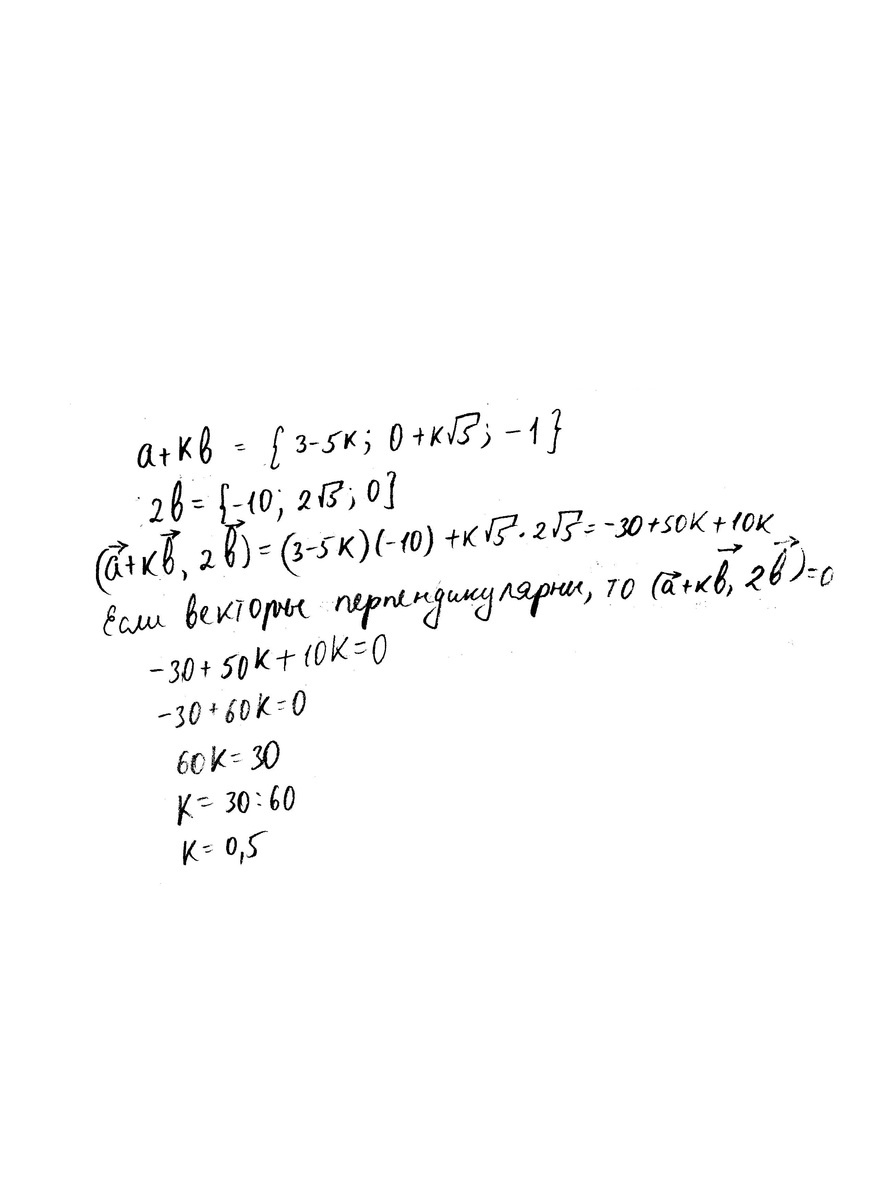 a+кb = {3-5к; 0+к√5; -1}
2b = {-10; 2√5; 0}
(a⃗+кb⃗, 2b⃗) = (3-5к)(-10)+к√5·2√5 = -30+50к+10к
Если векторы перпендикулярны, то (a⃗+кb⃗, 2b⃗)=0
-30+50к+10к=0
-30+60к=0
60к=30
к=30:60
к=0,5